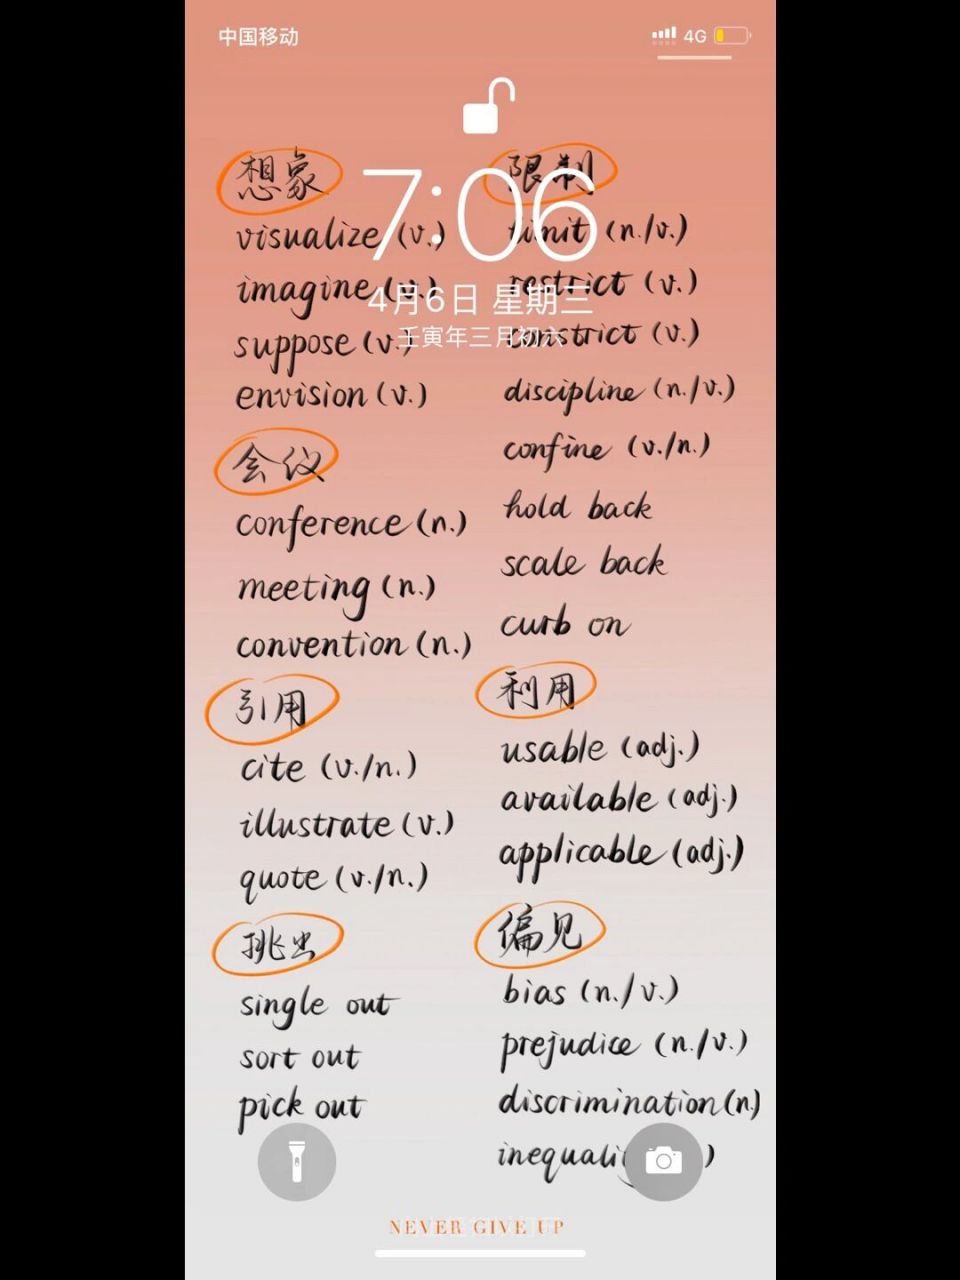 中国移动
4G
7:06
4月6日 星期三
壬寅年三月初六
想象
visualize (v.)
imagine (v.)
suppose (v.)
envision (v.)
会议
conference (n.)
meeting (n.)
convention (n.)
引用
cite (v./n.)
illustrate (v.)
quote (v./n.)
挑出
single out
sort out
pick out
限制
limit (n./v.)
restrict (v.)
constrict (v.)
discipline (n./v.)
confine (v./n.)
hold back
scale back
curb on
利用
usable (adj.)
available (adj.)
applicable (adj.)
偏见
bias (n./v.)
prejudice (n./v.)
discrimination (n.)
NEVER GIVE UP